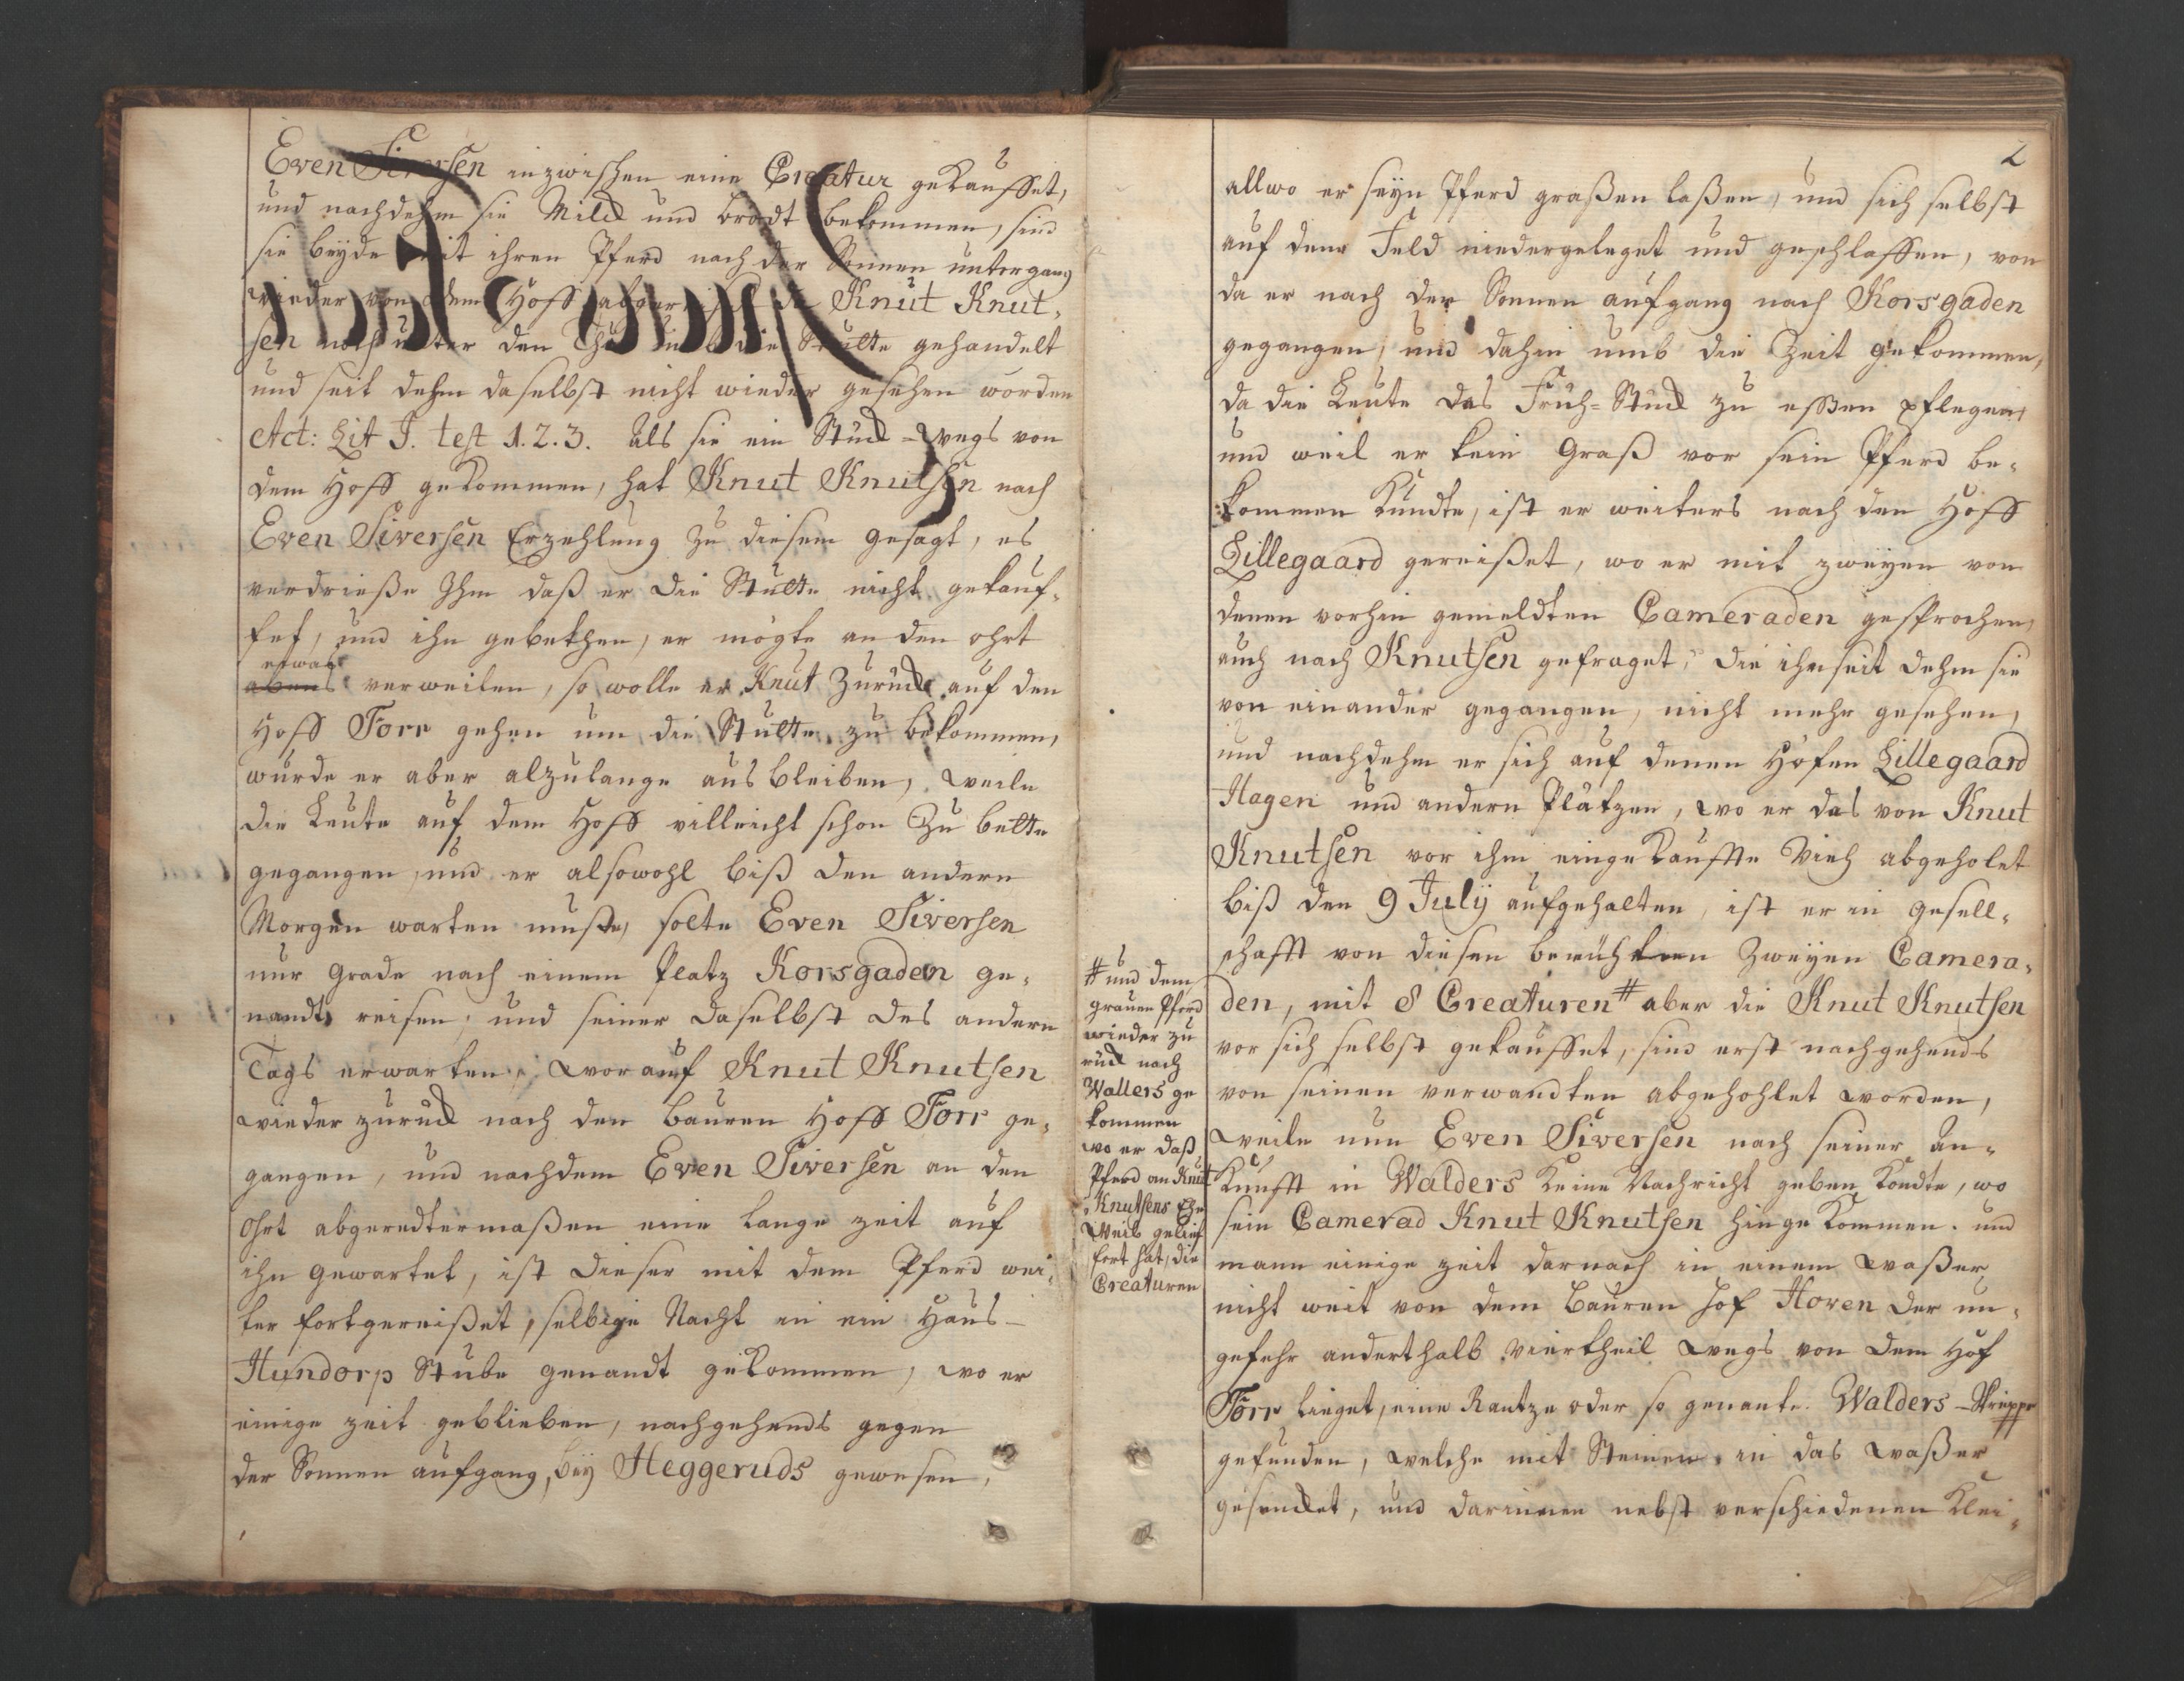 Even Siversen inzwischen eine Creatur gekauffet,
und nachdehm sie Milck und brodt bekommen, sind
sie beyde mit ihren Pferd nach der Sonnen untergang
wieder von dem Hoff Knut Knut,
sen noch unter den die Stutte gehandelt
und seit dehm daselbst nicht wieder gesehen worden
Act: Lit J. test 1. 2. 3. Als sie ein Stück-wegs von
dem Hoff gekommen, hat Knut Knutsen nach
Even Siversen Erzehlung zu diesem gesagt, es
verdrieße Ihm daß er die Stutte nicht gekauf-
fet, und ihn gebethen, er mögte an den ohrt
etwas
verweilen, so wolle er Knut zurück auf den
Hoff Forr gehen um die Stutte zu bekommen,
würde er aber alzulange ausbleiben, weile
die Leute auf dem Hoff villeicht schon zu bette
gegangen, und er alsowohl biß den andern
Morgen warten muste, solte Even Siversen
nur grade nach einem Platz Korsgaden ge-
nandt reisen, und seiner daselbst des andern
Tags erwarten, worauf Knut Knutsen
wieder zurück nach den Bauren Hoff Forr ge-
gangen, und nachdem Even Siversen an den
ohrt abgeredtermaßen eine lange zeit auf
ihn gewartet, ist dieser mit dem Pferd wei-
ter fortgereißet, selbige Nacht in ein Haus-
Hundorp Stube genandt gekommen, wo er
einige zeit geblieben, nachgehends gegen
der Sonnen aufgang, bey Heggeruds gewesen,
2
allwo er seyn Pferd graßen laßen, und sich selbst
auf dem Feld niedergeleget und geschlaffen, von
da er nach der Sonnen aufgang nach Korsgaden
gegangen, und dahin umb die Zeit gekommen,
da die Leute das Früh-Stück zu eßen pflegen,
und weil er kein Graß vor sein Pferd be-
kommen kundte, ist er weiters nach den Hoff
Lillegaard gereißet, wo er mit zweyen von
denen vorhin gemeldten Cameraden gesprochen,
auch nach Knutsen gefraget, die ihn seit dehm sie
von einander gegangen, nicht mehr gesehen,
und nachdehm er sich auf denen Höfen Lillegaard
Hagen und andern Plätzen, wo er das von Knut
Knutsen vor ihm eingekauffte Vieh abgeholet
biß den 9 July aufgehalten, ist er in gesell-
schafft von diesen berührten zweyen Camera-
den, mit 8 Creaturen # aber die Knut Knutsen
vor sich selbst gekauffet, sind erst nachgehends
von seinen verwandten abgehohlet worden,
weile nun Even Siversen nach seiner an-
kunfft in Walders keine Nachricht geben kondte, wo
sein Camerad Knut Knutsen hingekommen. und
mann einige zeit darnach in einem waßer
nicht weit von dem Bauren Hof Hoven der un-
gefehr anderthalb viertheil wegs von dem Hof
Forr lieget, eine Rantze oder so genante Walders-Skreppe
gefunden, welche mit Steinen in das waßer
gesencket, und darinnen nebst verschiedenen Klei-
# und dem
grauen Pferd
wieder zu
rück nach
Wallers ge
kommen
wo er daß
Pferd an Knut
Knutsens Ehe
Weib gelief
fert hat, die
Creaturen